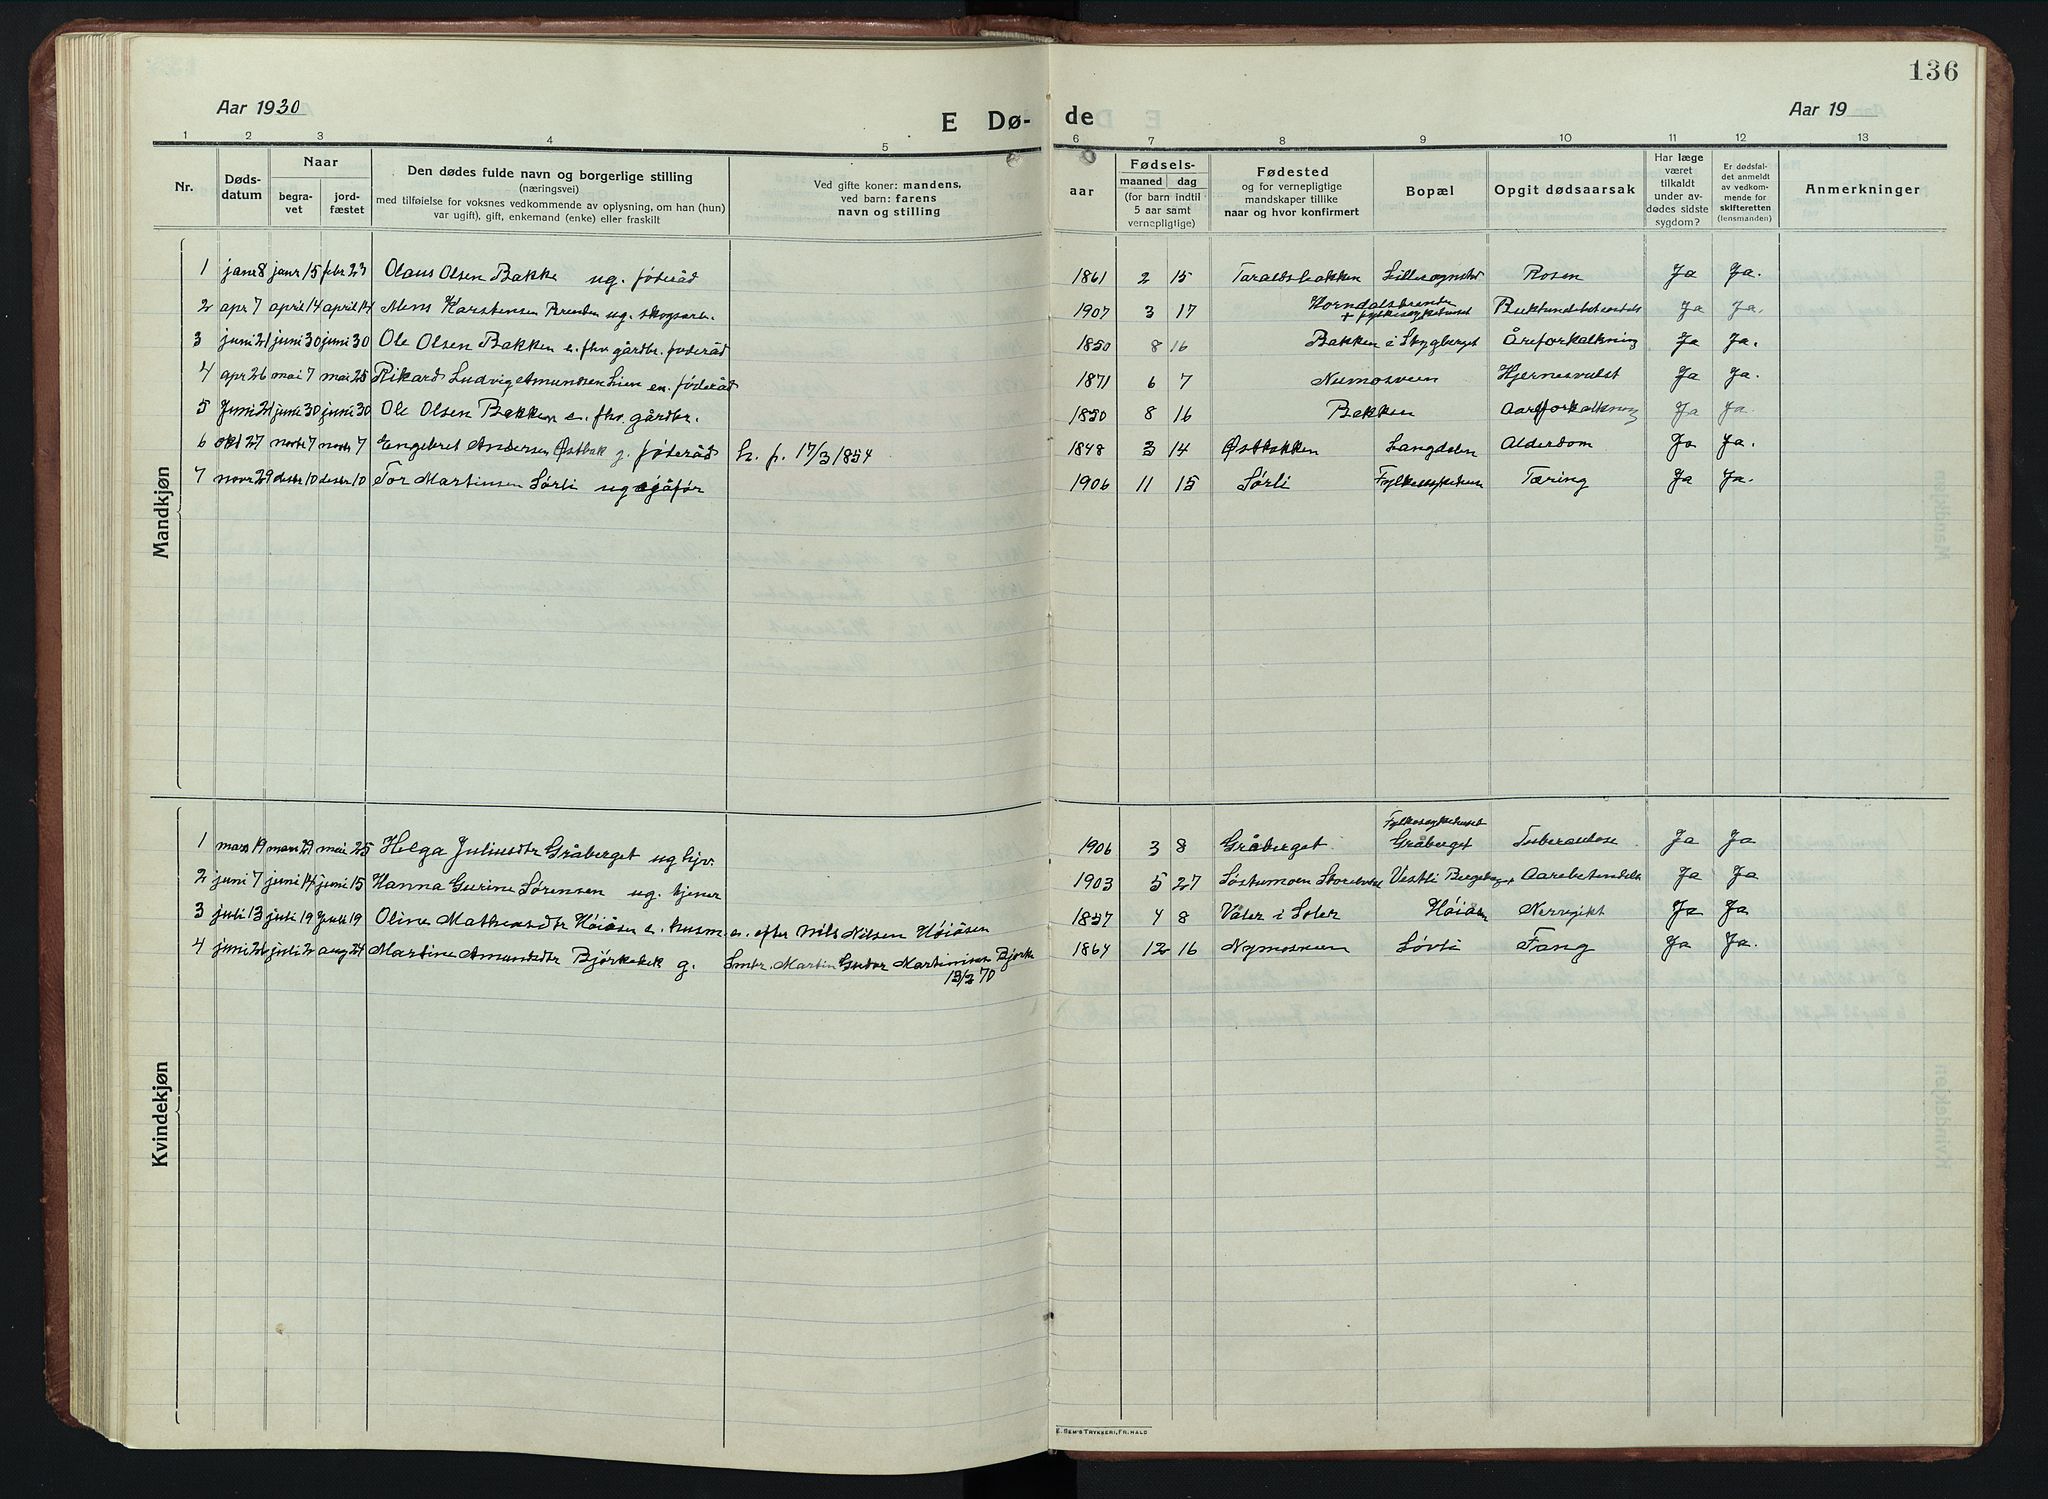 136
Aar 1930
E Dø- de
Aar 19
1 2 3 4 5 6 7 8 9 10 11 12 13
Nr.
Døds-
datum
Naar
begra-
vet
jord-
fæstet
Den dødes fulde navn og borgerlige stilling
(næringsvei)
med tilføielse for voksnes vedkommende av oplysning, om han (hun)
var ugift), gift, enkemand (enke) eller fraskilt
Ved gifte koner: mandens,
ved barn: farens
navn og stilling
aar
Fødsels-
maaned dag
(for barn indtil
5 aar samt
vernepligtige)
Fødested
og for vernepligtige
mandskaper tillike
naar og hvor konfirmert
Bopæl
Opgit dødsaarsak
Har læge
været
tilkaldt
under av-
dødes sidste
sygdom?
Er dødsfal-
det anmeldt
av vedkom-
mende for
skifteretten
(lensmanden)
Anmerkninger
Mandkjøn
1 jan 8 janr 15 febr 23 Olaus Olsen Bakke ug. føderåd 1861 2 15 Taraldsbakken Rosen Ja Ja.
2 apr 7 april 14 april 14 Karstensen ug. skogsarb. 1907 3 17 + fylkessykehuset Ja Ja.
3 juni 21 juni 30 juni 30 Ole Olsen Bakken e. fhv. gårdbr. føderåd 1850 8 16 Bakken i Skygberget Åreforkalkning Ja Ja.
4 apr 26 mai 7 mai 25 Rikard Ludvig Amundsen Lien en. føderåd 1871 6 7 Numosveen Hjernesvulst Ja Ja.
5 Juni 21 juni 30 juni 30 Ole Olsen Bakken e. fhv. gårdbr. 1850 8 16 Bakken Aareforkalkning Ja Ja
6 okt 27 novbr 7 novbr 7 Engebret Andersen Østbak g. føderåd h. f. 17/3 1854 1848 3 14 Østbakken Langdalen Alderdom Ja Ja.
7 novr 29 desbr 10 desbr 10 Tor Martinsen Sørli ug 1906 11 15 Sørli Fylkessykehus Tæring Ja Ja.
Kvindekjøn
Fylkessykehuset
1 mars 19 mars 29 mai 25 Helga Juliusdtr Gråberget ug hjv. 1906 3 8 Gråberget Gråberget Tuberculose Ja Ja
2 juni 7 juni 14 juni 15 Hanna Gurine Sørensen ug. tjener 1903 5 27 Vestli Ja Ja
3 juli 13 juli 19 Juli 19 Oline Mathiasdtr Høiåsen e. husm. e. efter Nils Nilsen Høiåsen 1857 4 8 Våler i Soler Høiåsen Nervegikt Ja Ja
4 juni 26 juli 2 aug 24 Martine Amundsdtr Bjørkebek g. Smbr. Martin Gudor Martinisen Bjørke 1864 12 16 Nymosveen Løvli Fang Ja Ja.
13/2 70
E. SEM'S TRYKKERI, FR. HALD